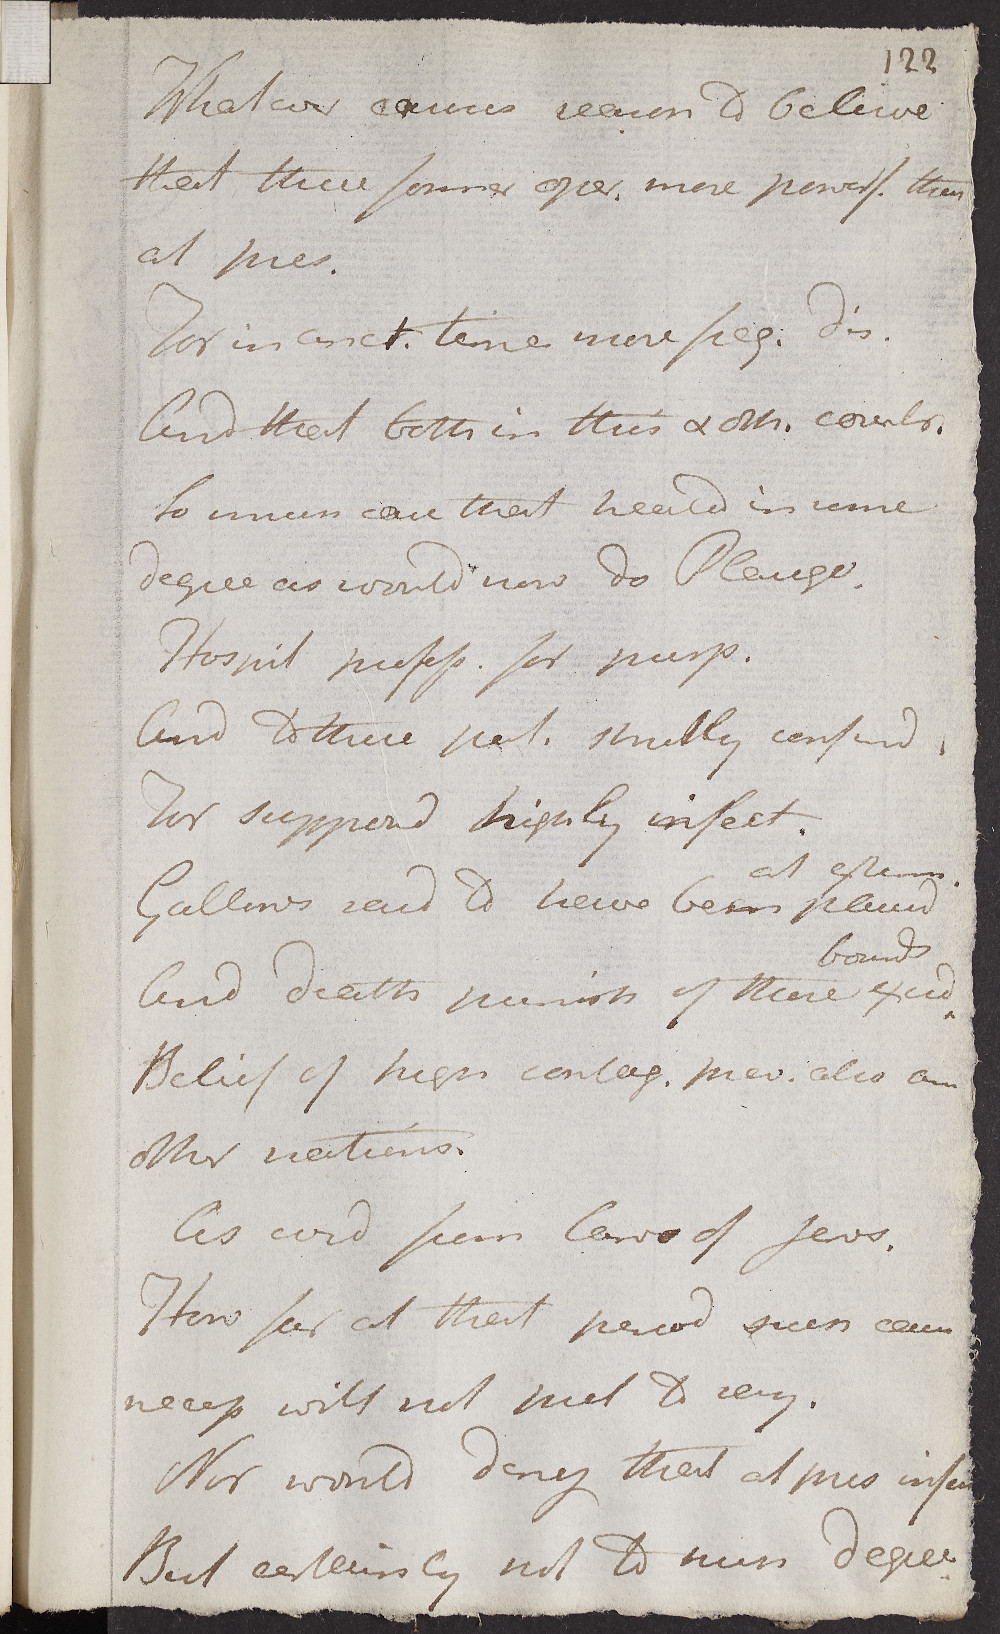 122
Whatever causes reason to believe
that these former oper. more powerf. than
at pres.
For in anct. time more freq. dis.
And that both in this & oth. countr.
So much care that heald in same
degree as would now do Plague.
Hospit profess. for purp.
And to these pat. strictly confind.
For supposd highly infect.
at extrem.
Gallows said to have been placed
bounds
And death punish of those exced
Belief of high contag. prev. also am
other nations.
As covd from laws of Jews.
How far at that period such caut
necess will not pret to say.
Nor would deny that at pres infect
But certainly not to such degree.